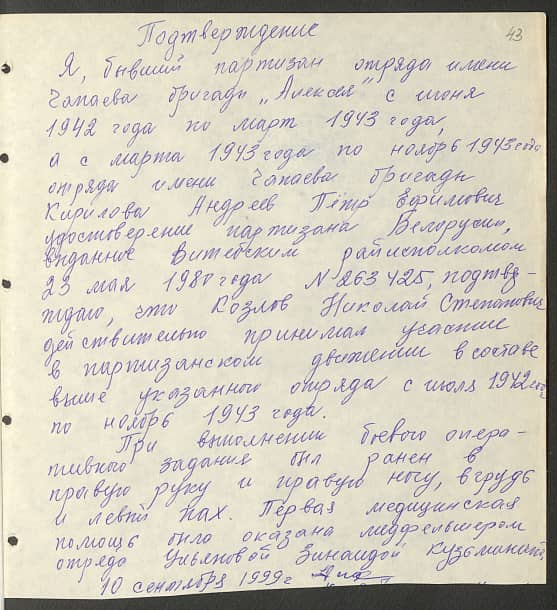 43
Подтверждение
Я, бывший партизан отряда имени
Чапаева бригады „Алексея" с июня
1942 года по март 1943 года,
а с марта 1943 года по ноябрь 1943 года
отряда имени Чапаева бригады
Кирилова Андреев Пётр Ефимович
удостоверение партизана Белорусии,
выданное Витебским райисполкомом
23 мая 1980 года N 263425, подтвер-
ждаю, что Козлов Николай Степанович
действительно принимал участие
в партизанском движении в составе
выше указанного отряда с июля 1942 года
по ноябрь 1943 года.
При выполнении боевого опера-
тивного задания был ранен в
правую руку и правую ногу, в грудь
и левый пах. Первая медицинская
помощь была оказана медфельшером
отряда Ульяновой Зинаидой Кузьминичной
10 сентября 1999 г